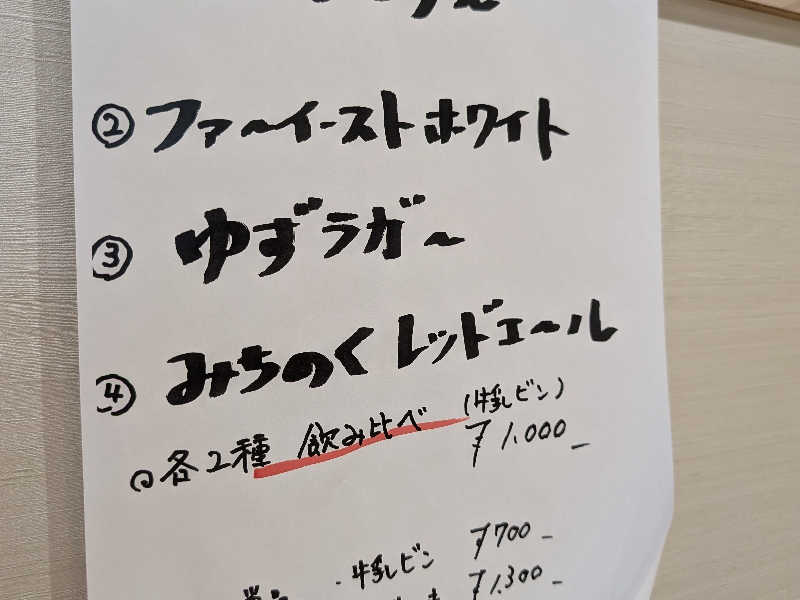 ② ファーイーストホワイト
③ ゆずラガー
④ みちのくレッドエール
○各2種 飲み比べ (牛乳ビン) ¥1,000-
・牛乳ビン ¥700-
¥1,300-